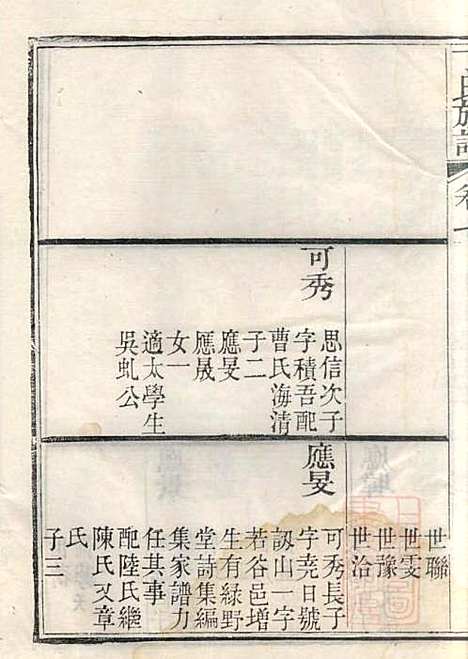 氏族譜
卷七
可秀
思信次子
字積吾配
曹氏海清
子二
應旻
應晟
女一
適太學生
吳虬公
世聯
世雯
世豫
世治
應旻
可秀長子
字堯日號
訒山一字
若谷邑增
生有綠野
堂詩集編
集家譜力
任其事
配陸氏繼
陳氏又章
氏
子三